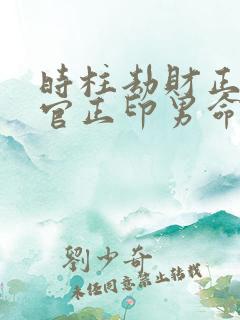 時柱劫財正
官正印男命
劉少奇
未經同意禁止轉載